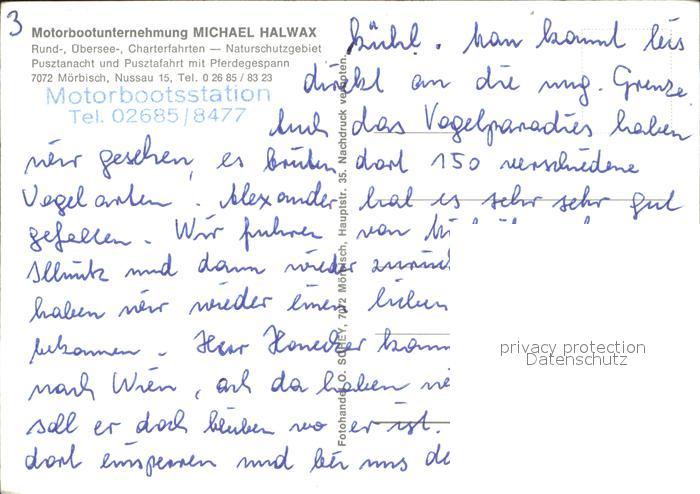 3
Motorbootunternehmung MICHAEL HALWAX
Rund-, Übersee-, Charterfahrten — Naturschutzgebiet
Pusztanacht und Pusztafahrt mit Pferdegespann
7072 Mörbisch, Nussau 15, Tel. 0 26 85 / 83 23
Motorbootsstation
Tel. 02685/8477
kühl. Man kommt bis
direkt an die ung. Grenze.
Auch das Vogelparadies haben
wir gesehen, es brüten dort 150 verschiedene
Vogelarten. Alexander hat es sehr sehr gut
gefallen. Wir fuhren von
Illmitz und dann wieder zurück
haben wir wieder einen lieben
bekommen. Herr Honecker komm
nach Wien, ach da haben wi
soll er doch bleiben wo er ist.
dort einsperren und bei uns de
Fotohandel O. SOMEY, 7072 Mörbisch, Hauptstr. 35. Nachdruck verboten.
privacy protection
Datenschutz